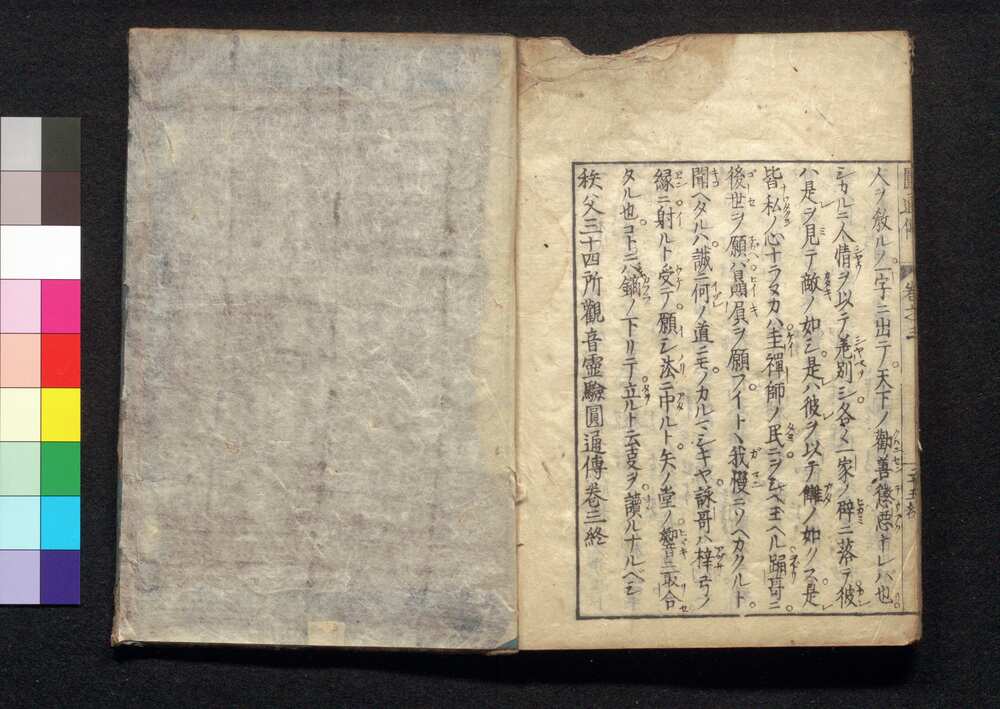 圓通傳 卷之三
人ヲ教ルノ一字ニ出テ天下ノ勸善懲悪ナレバ也
シカルニ人情ヲ以テ差別シ各々一家ノ僻ニ落テ彼
ハ是ヲ見テ敵ノ如シ是ハ彼ヲ以テ讎ノ如クス是
皆私ノ心ナラヌカハ主禪師ノ民ニヲシヘ玉ヘル踊哥ニ
後世ヲ願ハ贔屓ヲ願フイト我慢ニソヘカクルト
聞ヘタルハ誠ニ何ノ道ニモノカルマシキヤ詠哥ハ梓弓ノ
縁ニ射ルト受テ願シ法ニ中ルト矢ノ堂ノ響ニ取合
タル也コトニハ鏑ノ下リニテ立ルト云支ヲ讀ルナルベシ
秩父三十四所觀音靈驗圓通傳卷三終